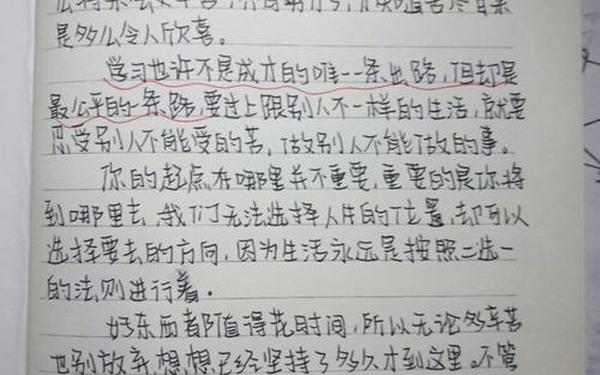 是多么令人欣喜。
学习也许不是成才的唯一一条出路，但却是
最公平的一条路，要过上跟别人不一样的生活，就要
忍受别人不能受的苦，做别人不能做的事。
你的起点在哪里并不重要，重要的是你将
到哪里去，我们无法选择人生的位置，却可以
选择要去的方向，因为生活永远是按照二选一
的法则进行着。
好东西都值得花时间，所以无论多辛苦
也别放弃，想想已经坚持了多久才到这里。不管